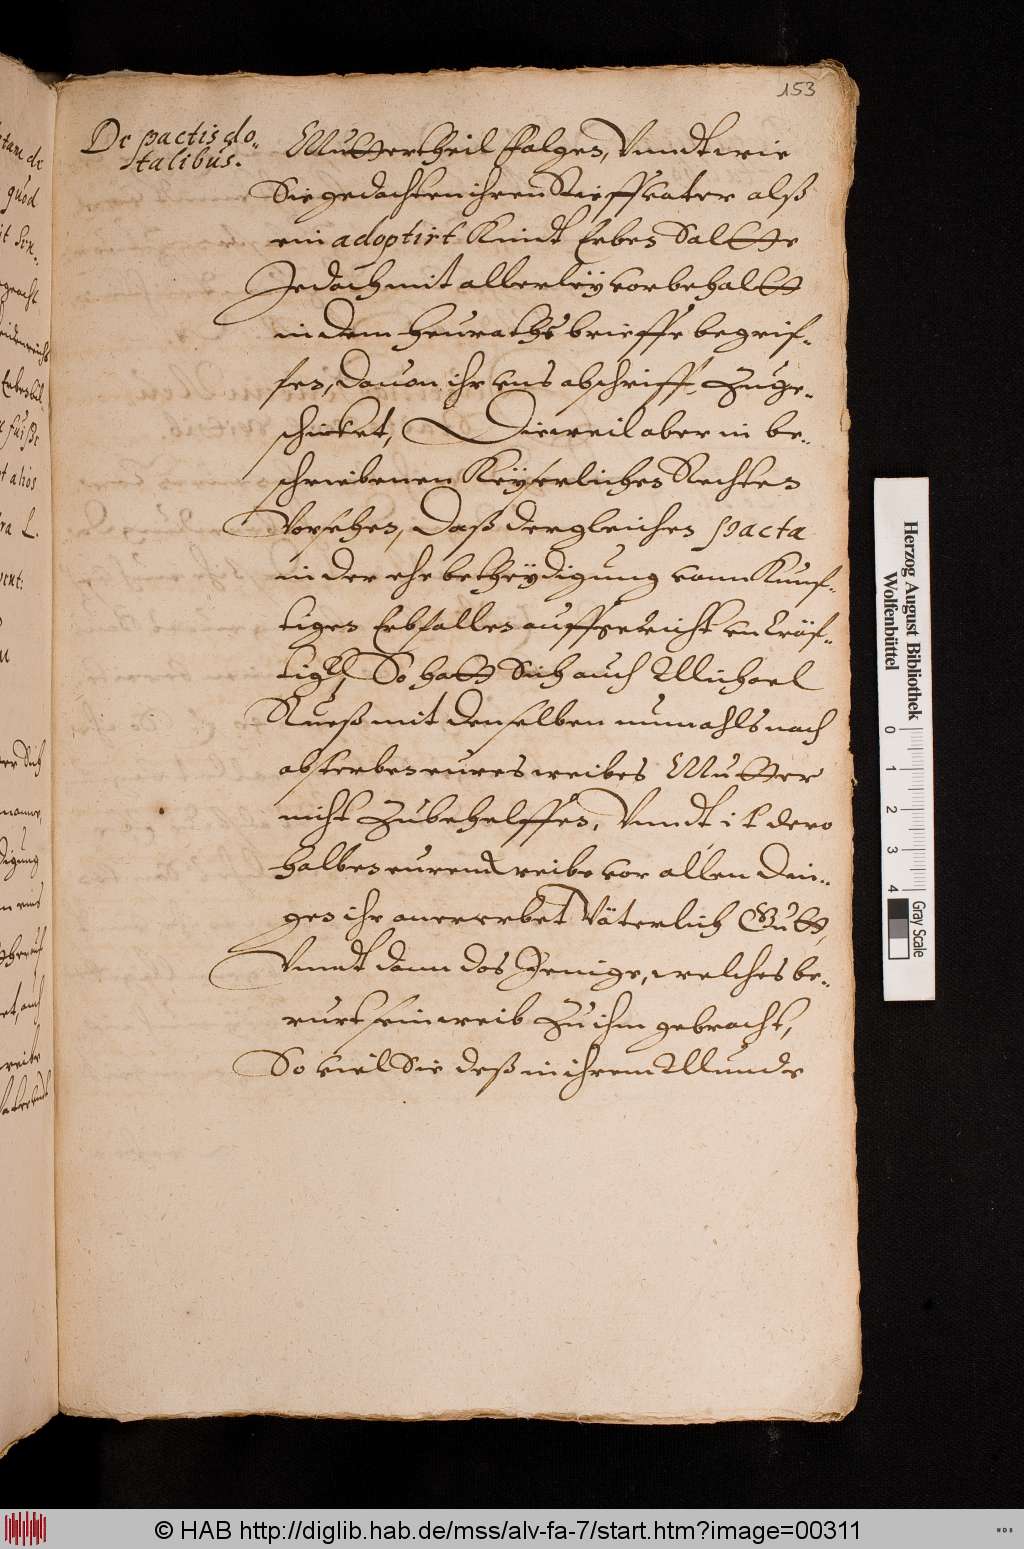 153
De pactis do-
talibus.
Muttertheil Folgen, Vnndt wie
Sie gedachten ihren Stieffvater alß
ein adoptirt Kindt Erben Soltte
Jedoch mit allerley vorbehaltt
in dem heuraths brieffe begrif-
fen, dauon ihr vns abschrifft zuge-
schicket, Dieweil aber in be-
schriebenen Keyserlichen Rechten
Vorsehen, Daß dergleichen pacta
in der ehe betheydigung vom Kunf-
tigen Erbfallen auffgericht vnkräf-
tigk, So hatt Sich auch Michael
mit denselben nunmahls nach
absterben eures weibes Mutter
nicht Zubehelffen, Vnndt ist dero
halben eurem weibe vor allen Din-
gen ihr anererbet Väterlich Gutt,
Vnndt dann das Jenige, welches be-
rurt sein weib Zu ihm gebracht,
So viel Sie deß in ihrem Munde
quod
alios
L.
Herzog August Bibliothek
Wolfenbüttel
0 1 2 3 4
Gray Scale
© HAB http://diglib.hab.de/mss/alv-fa-7/start.htm?image=00311